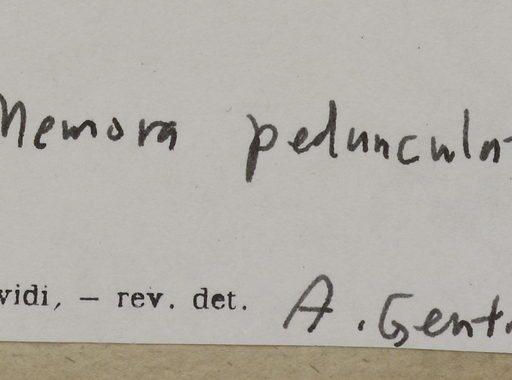 Memora pedunculat
vidi, – rev. det. A. Gentr